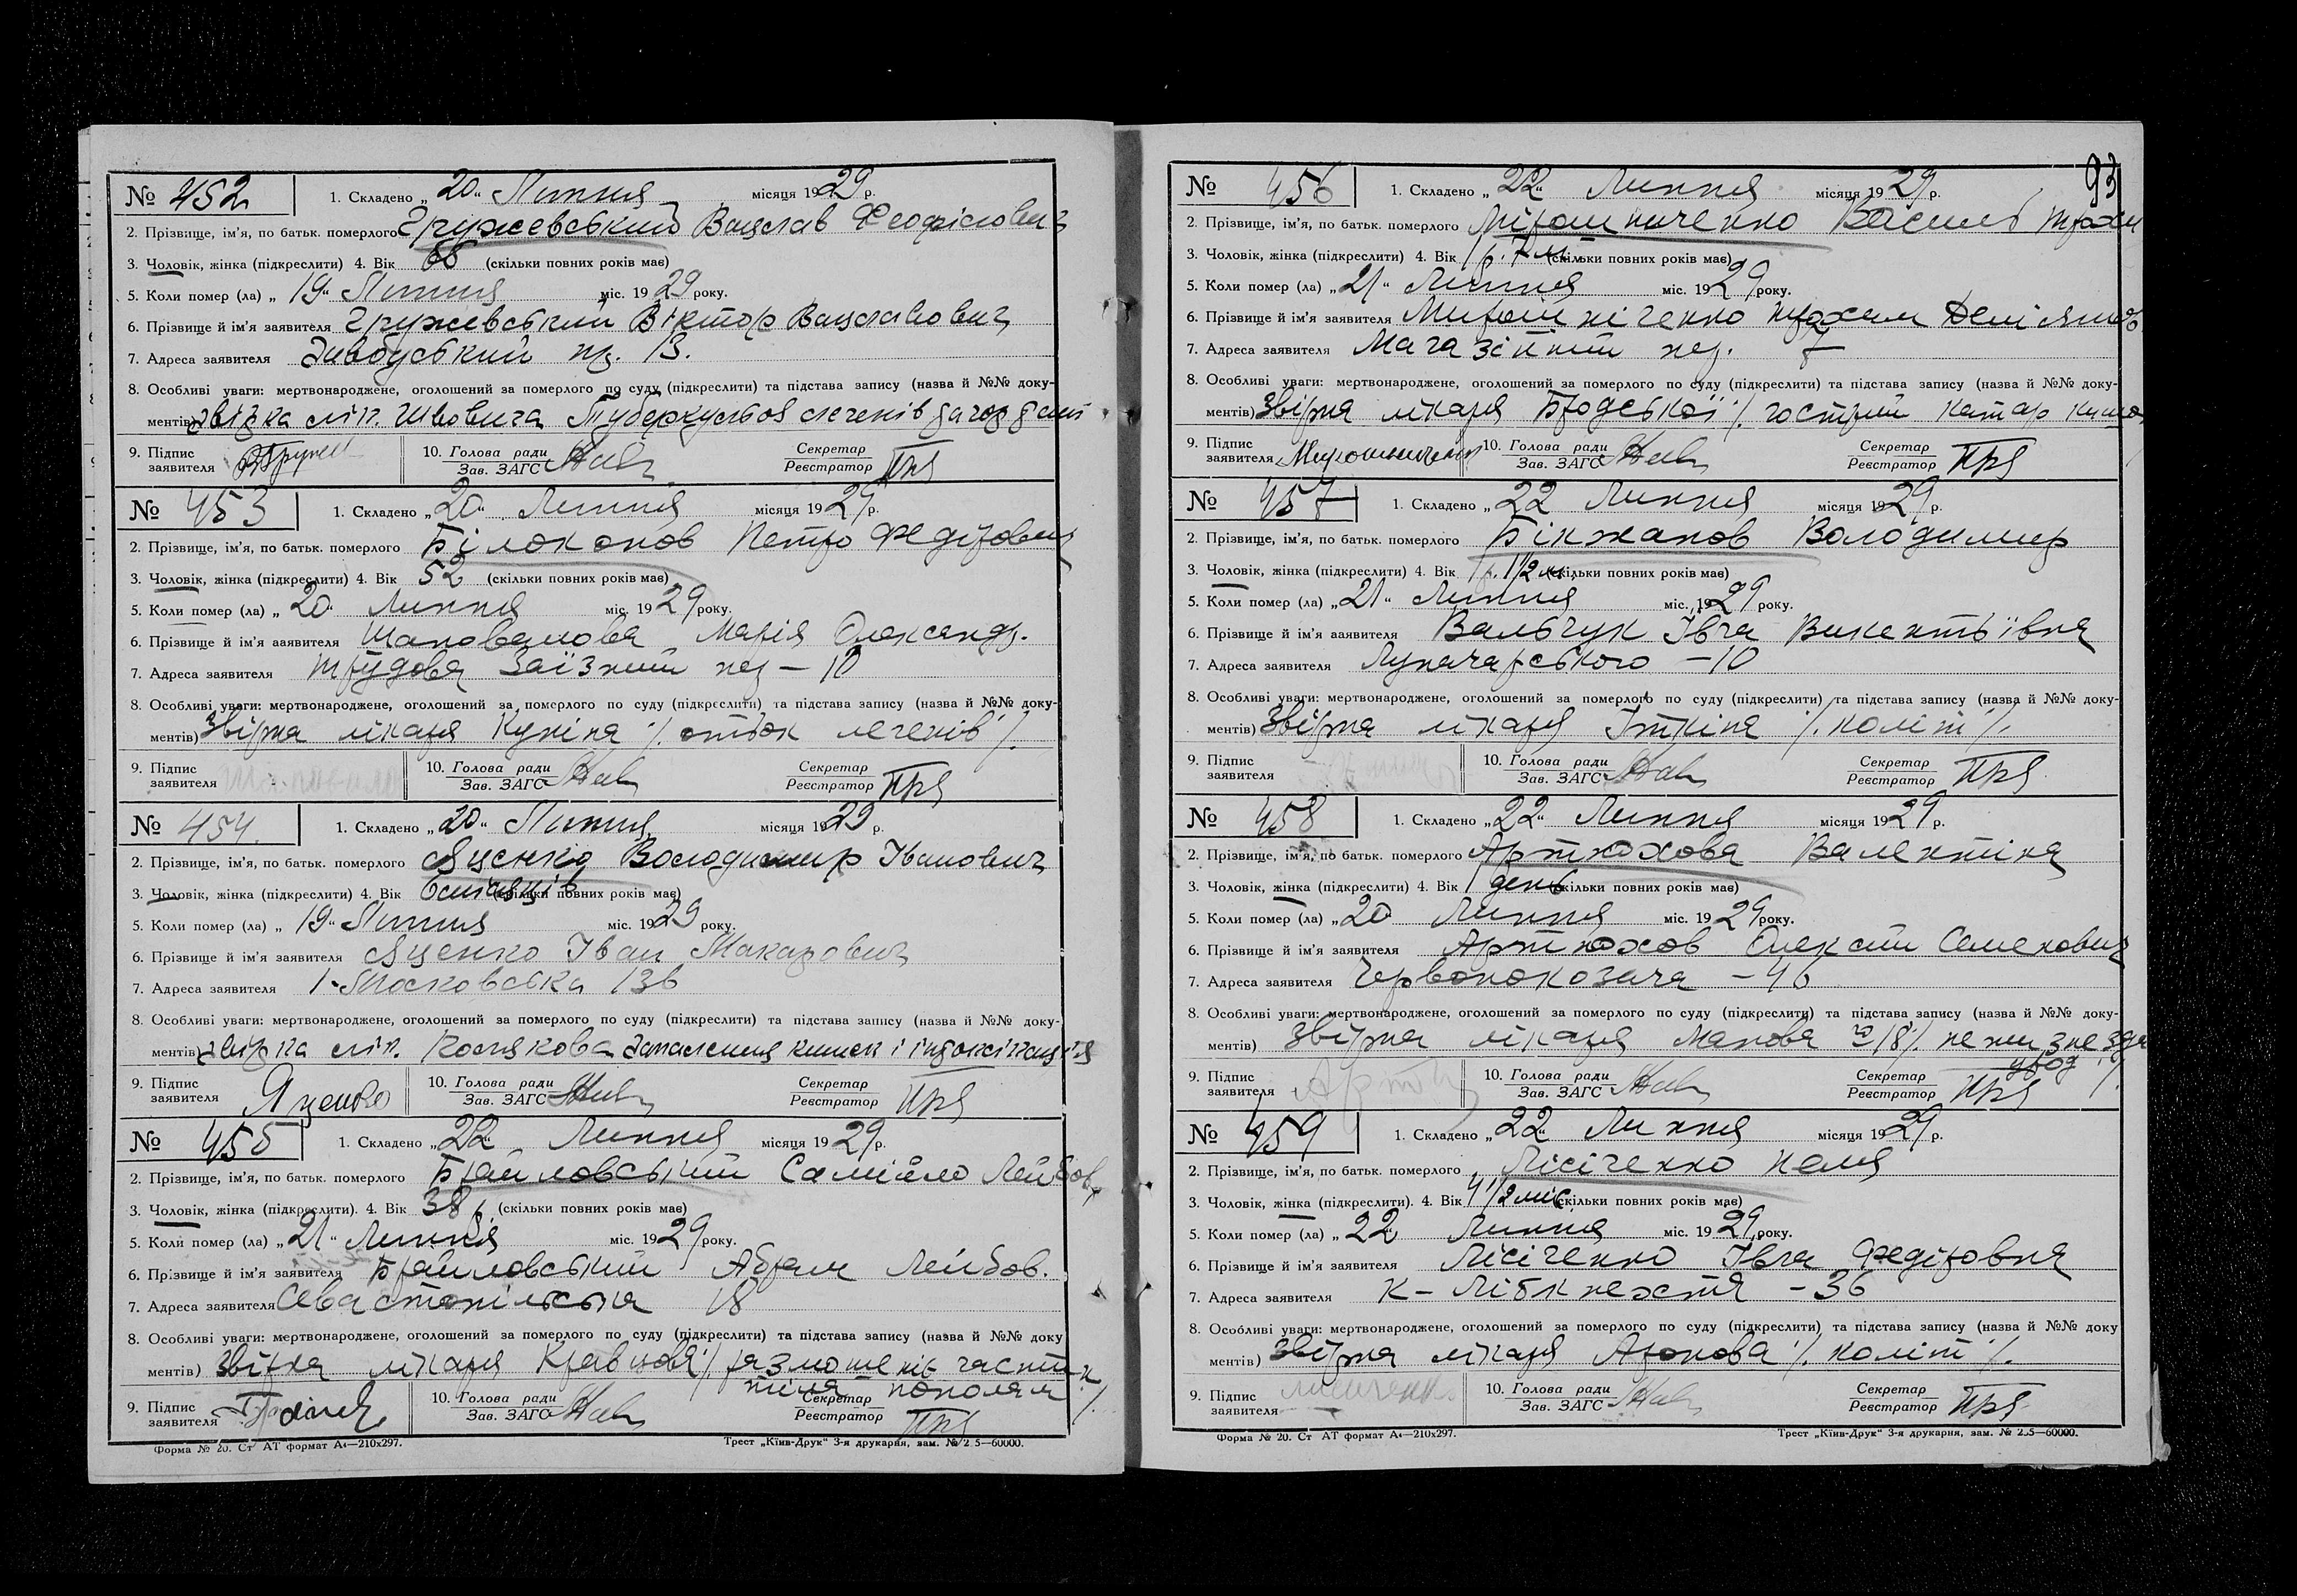 93
№ 452 1. Складено „20“ Липня місяця 1929 р.
2. Прізвище, ім'я, по батьк. померлого Гружевський Вацслав
3. Чоловік, жінка (підкреслити) 4. Вік 68 (скільки повних років має)
5. Коли помер (ла) „19“ Липня міс. 1929 року.
6. Прізвище й ім'я заявителя Гружевський Віктор Вацславович
7. Адреса заявителя пр. 13.
8. Особливі уваги: мертвонароджене, оголошений за померлого по суду (підкреслити) та підстава запису (назва й №№ доку-
ментів) звірка лік. Туберкульоз легенів
9. Підпис заявителя 10. Голова ради Зав. ЗАГС Секретар Реєстратор
№ 453 1. Складено „20“ Липня місяця 1929 р.
2. Прізвище, ім'я, по батьк. померлого Білоконов Петро Федорович
3. Чоловік, жінка (підкреслити) 4. Вік 52 (скільки повних років має)
5. Коли помер (ла) „20“ Липня міс. 1929 року.
6. Прізвище й ім'я заявителя Шаповалова Марія Олександр.
7. Адреса заявителя Трудова Заїзний пер – 10
8. Особливі уваги: мертвонароджене, оголошений за померлого по суду (підкреслити) та підстава запису (назва й №№ доку-
ментів) Звірка лікаря Куніна /. отьок легенів /.
9. Підпис заявителя 10. Голова ради Зав. ЗАГС Секретар Реєстратор
№ 454. 1. Складено „20“ Липня місяця 1929 р.
2. Прізвище, ім'я, по батьк. померлого Яценко Володимир Іванович
3. Чоловік, жінка (підкреслити) 4. Вік 6 місяців (скільки повних років має)
5. Коли помер (ла) „19“ Липня міс. 1929 року.
6. Прізвище й ім'я заявителя Яценко Іван Макарович
7. Адреса заявителя 1-Московська 136
8. Особливі уваги: мертвонароджене, оголошений за померлого по суду (підкреслити) та підстава запису (назва й №№ доку-
ментів) звірка лік. Запалення кишек і
9. Підпис заявителя Яценко 10. Голова ради Зав. ЗАГС Секретар Реєстратор
№ 455 1. Складено „22“ Липня місяця 1929 р.
2. Прізвище, ім'я, по батьк. померлого Браиловський Самійло Лейбов.
3. Чоловік, жінка (підкреслити). 4. Вік 38 р. (скільки повних років має)
5. Коли помер (ла) „21“ Липня міс. 1929 року.
6. Прізвище й ім'я заявителя Браиловський Абрам Лейбов.
7. Адреса заявителя Севастопільська 18
8. Особливі уваги: мертвонароджене, оголошений за померлого по суду (підкреслити) та підстава запису (назва й №№ доку
ментів) Звірка лікаря Кравцова /.
тіла пополам /.
9. Підпис заявителя 10. Голова ради Зав. ЗАГС Секретар Реєстратор
Форма № 20. Ст АТ формат А4—210х297. Трест „Київ-Друк“ 3-я друкарня, зам. № 2 5—60000.
№ 456 1. Складено „22“ Липня місяця 1929 р.
2. Прізвище, ім'я, по батьк. померлого Мірошниченко Василь
3. Чоловік, жінка (підкреслити) 4. Вік 1 р. 7 м. (скільки повних років має)
5. Коли помер (ла) „21“ Липня міс. 1929 року.
6. Прізвище й ім'я заявителя
7. Адреса заявителя Магазійний пер. 7
8. Особливі уваги: мертвонароджене, оголошений за померлого по суду (підкреслити) та підстава запису (назва й №№ доку-
ментів) Звірка лікаря Бродської /. гострий катар
9. Підпис заявителя 10. Голова ради Зав. ЗАГС Секретар Реєстратор
№ 457 1. Складено „22 Липня місяця 1929 р.
2. Прізвище, ім'я, по батьк. померлого Бікжанов Володимир
3. Чоловік, жінка (підкреслити) 4. Вік 1 р. 1 1/2 м. (скільки повних років має)
5. Коли помер (ла) „21“ Липня міс. 1929 року.
6. Прізвище й ім'я заявителя Вальчук Івга Викентьївна
7. Адреса заявителя Луначарського – 10
8. Особливі уваги: мертвонароджене, оголошений за померлого по суду (підкреслити) та підстава запису (назва й №№ доку-
ментів) Звірка лікаря Іткіна /. коліт /.
9. Підпис заявителя 10. Голова ради Зав. ЗАГС Секретар Реєстратор
№ 458 1. Складено „22“ Липня місяця 1929 р.
2. Прізвище, ім'я, по батьк. померлого Артюхова Валентіна
3. Чоловік, жінка (підкреслити) 4. Вік 1 день (скільки повних років має)
5. Коли помер (ла) „20 Липня міс. 1929 року.
6. Прізвище й ім'я заявителя Артюхов Олексій Семенович
7. Адреса заявителя Червонокозача – 46
8. Особливі уваги: мертвонароджене, оголошений за померлого по суду (підкреслити) та підстава запису (назва й №№ доку-
ментів) Звірка лікаря
9. Підпис заявителя 10. Голова ради Зав. ЗАГС Секретар Реєстратор
№ 459 1. Складено „22“ Липня місяця 1929 р.
2. Прізвище, ім'я, по батьк. померлого Лісіченко Неля
3. Чоловік, жінка (підкреслити). 4. Вік 4 1/2 міс (скільки повних років має)
5. Коли помер (ла) „22 Липня міс. 1929 року.
6. Прізвище й ім'я заявителя Лісіченко Івга Федіровна
7. Адреса заявителя К – Лібкнехтя – 36
8. Особливі уваги: мертвонароджене, оголошений за померлого по суду (підкреслити) та підстава запису (назва й №№ доку
ментів) Звірка лікаря /. коліт /.
9. Підпис заявителя 10. Голова ради Зав. ЗАГС Секретар Реєстратор
Форма № 20. Ст АТ формат А4—210х297. Трест „Київ-Друк“ 3-я друкарня, зам. № 2.5—60000.